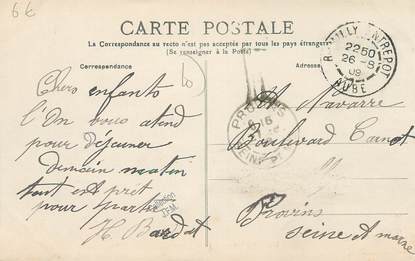 6€
CARTE POSTALE
La Correspondance au recto n'est pas acceptée par tous les pays étrangers
(Se renseigner à la Poste)
Correspondance
ROMILLY ENTREPOT
2250
26-8
09
AUBE
Chers enfants
l'On vous attend
pour déjeuner
demain matin
tout est prêt
pour partir
H. Bardat
PROVINS
SEINE ET
Navarre
Boulevard Carnot
Provins
Seine et Marne